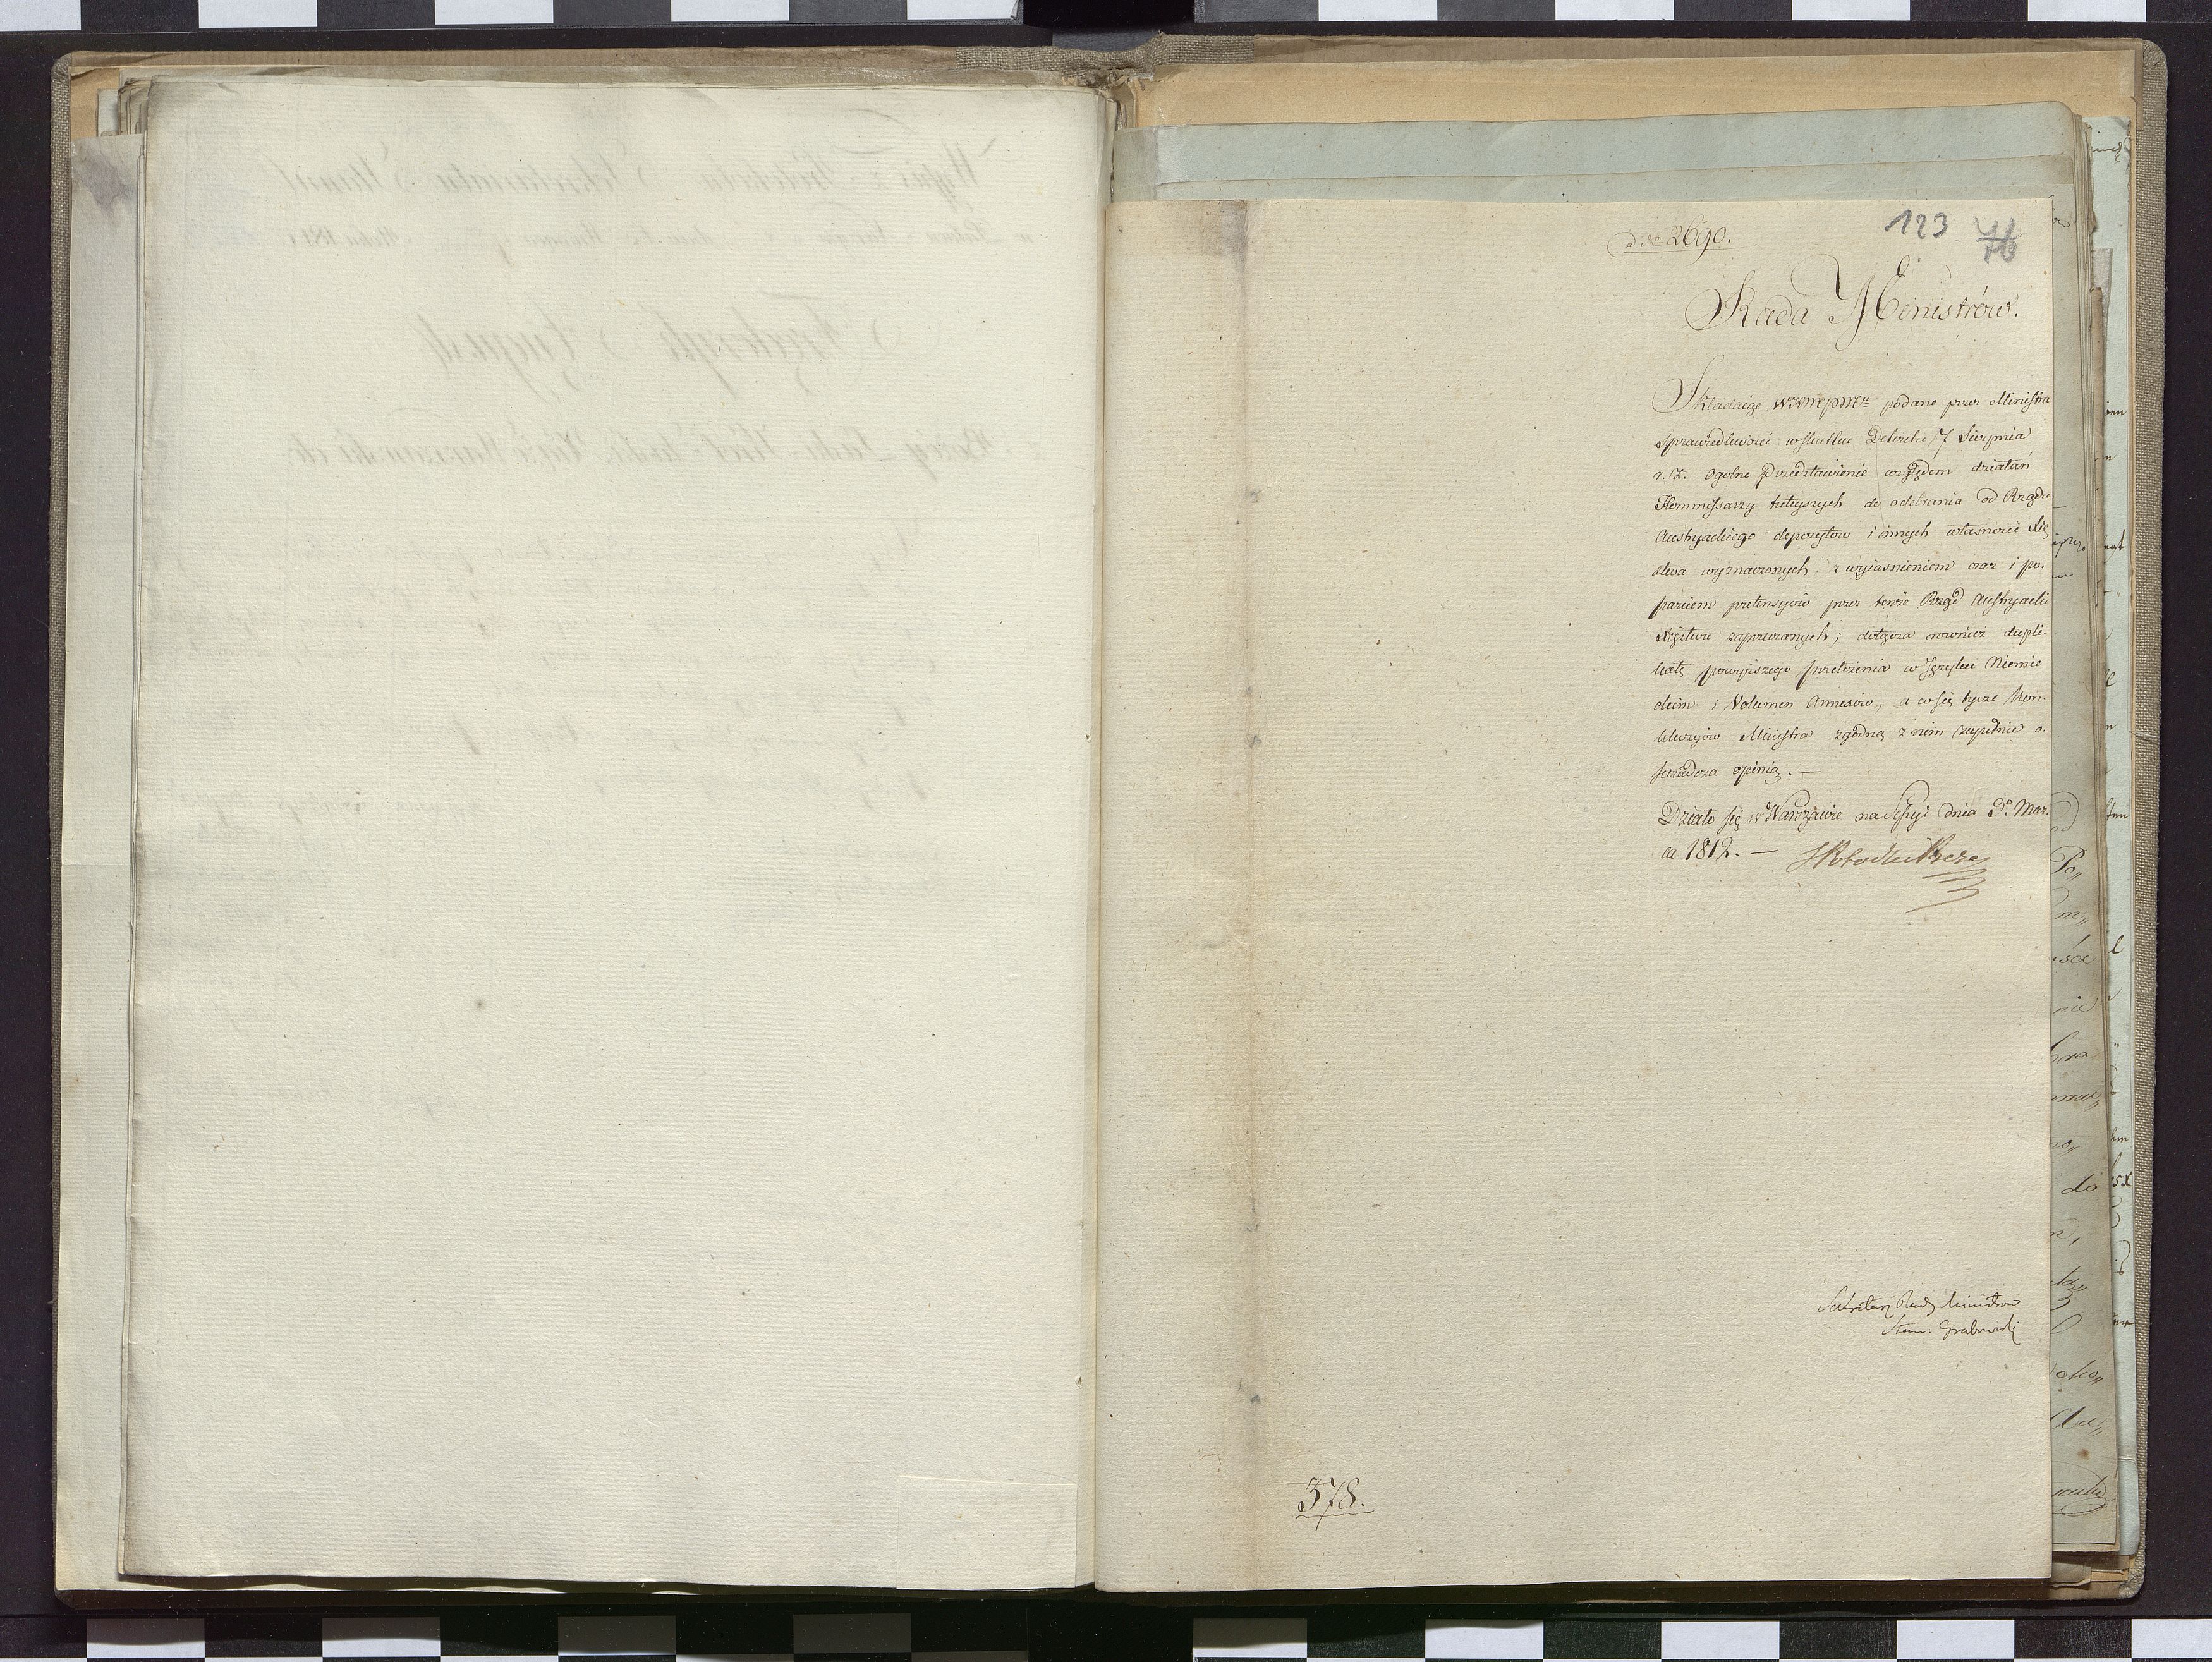 ad Nro 2690.
123 76
Rada Ministrów.
Składaiąc podane przez Ministra
Sprawiedliwości w skutku Dekretu 7 Sierpnia
r. z. Ogolne Przedstawienie względem działań
Kommissarzy tuteyszych do odebrania od Rządu
Austryackiego depozytow i innych własności Xię
stwa wyznaczonych z wyiasnieniem oraz i po-
parciem pretensyów przez tenże Rząd Austryacki
Xięstwu zaprzeczonych; dołącza rownież dupli-
katę powyższego przełożenia w Języku Niemie
ckim i Volumen Annexów, a co się tycze Kon-
kluzyów Ministra zgodną z nim zupełnie o-
świadcza opinią. —
Działo się w Warszawie na Sessyi dnia 3o Mar-
ca 1812. —
Sekretarz Rady Ministrow
Stan: Grabowski
378.